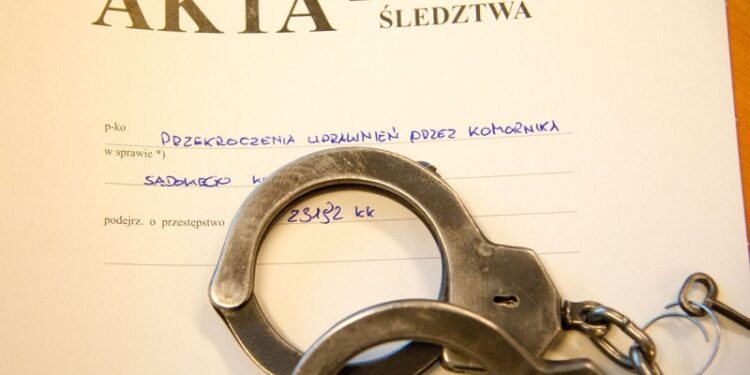 AKTA
ŚLEDZTWA
p-ko PRZEKROCZENIA UPRAWNIEŃ PRZEZ KOMORNIKA
w sprawie *)
SĄDOWEGO
podejrz. o przestępstwo 231§2 kk